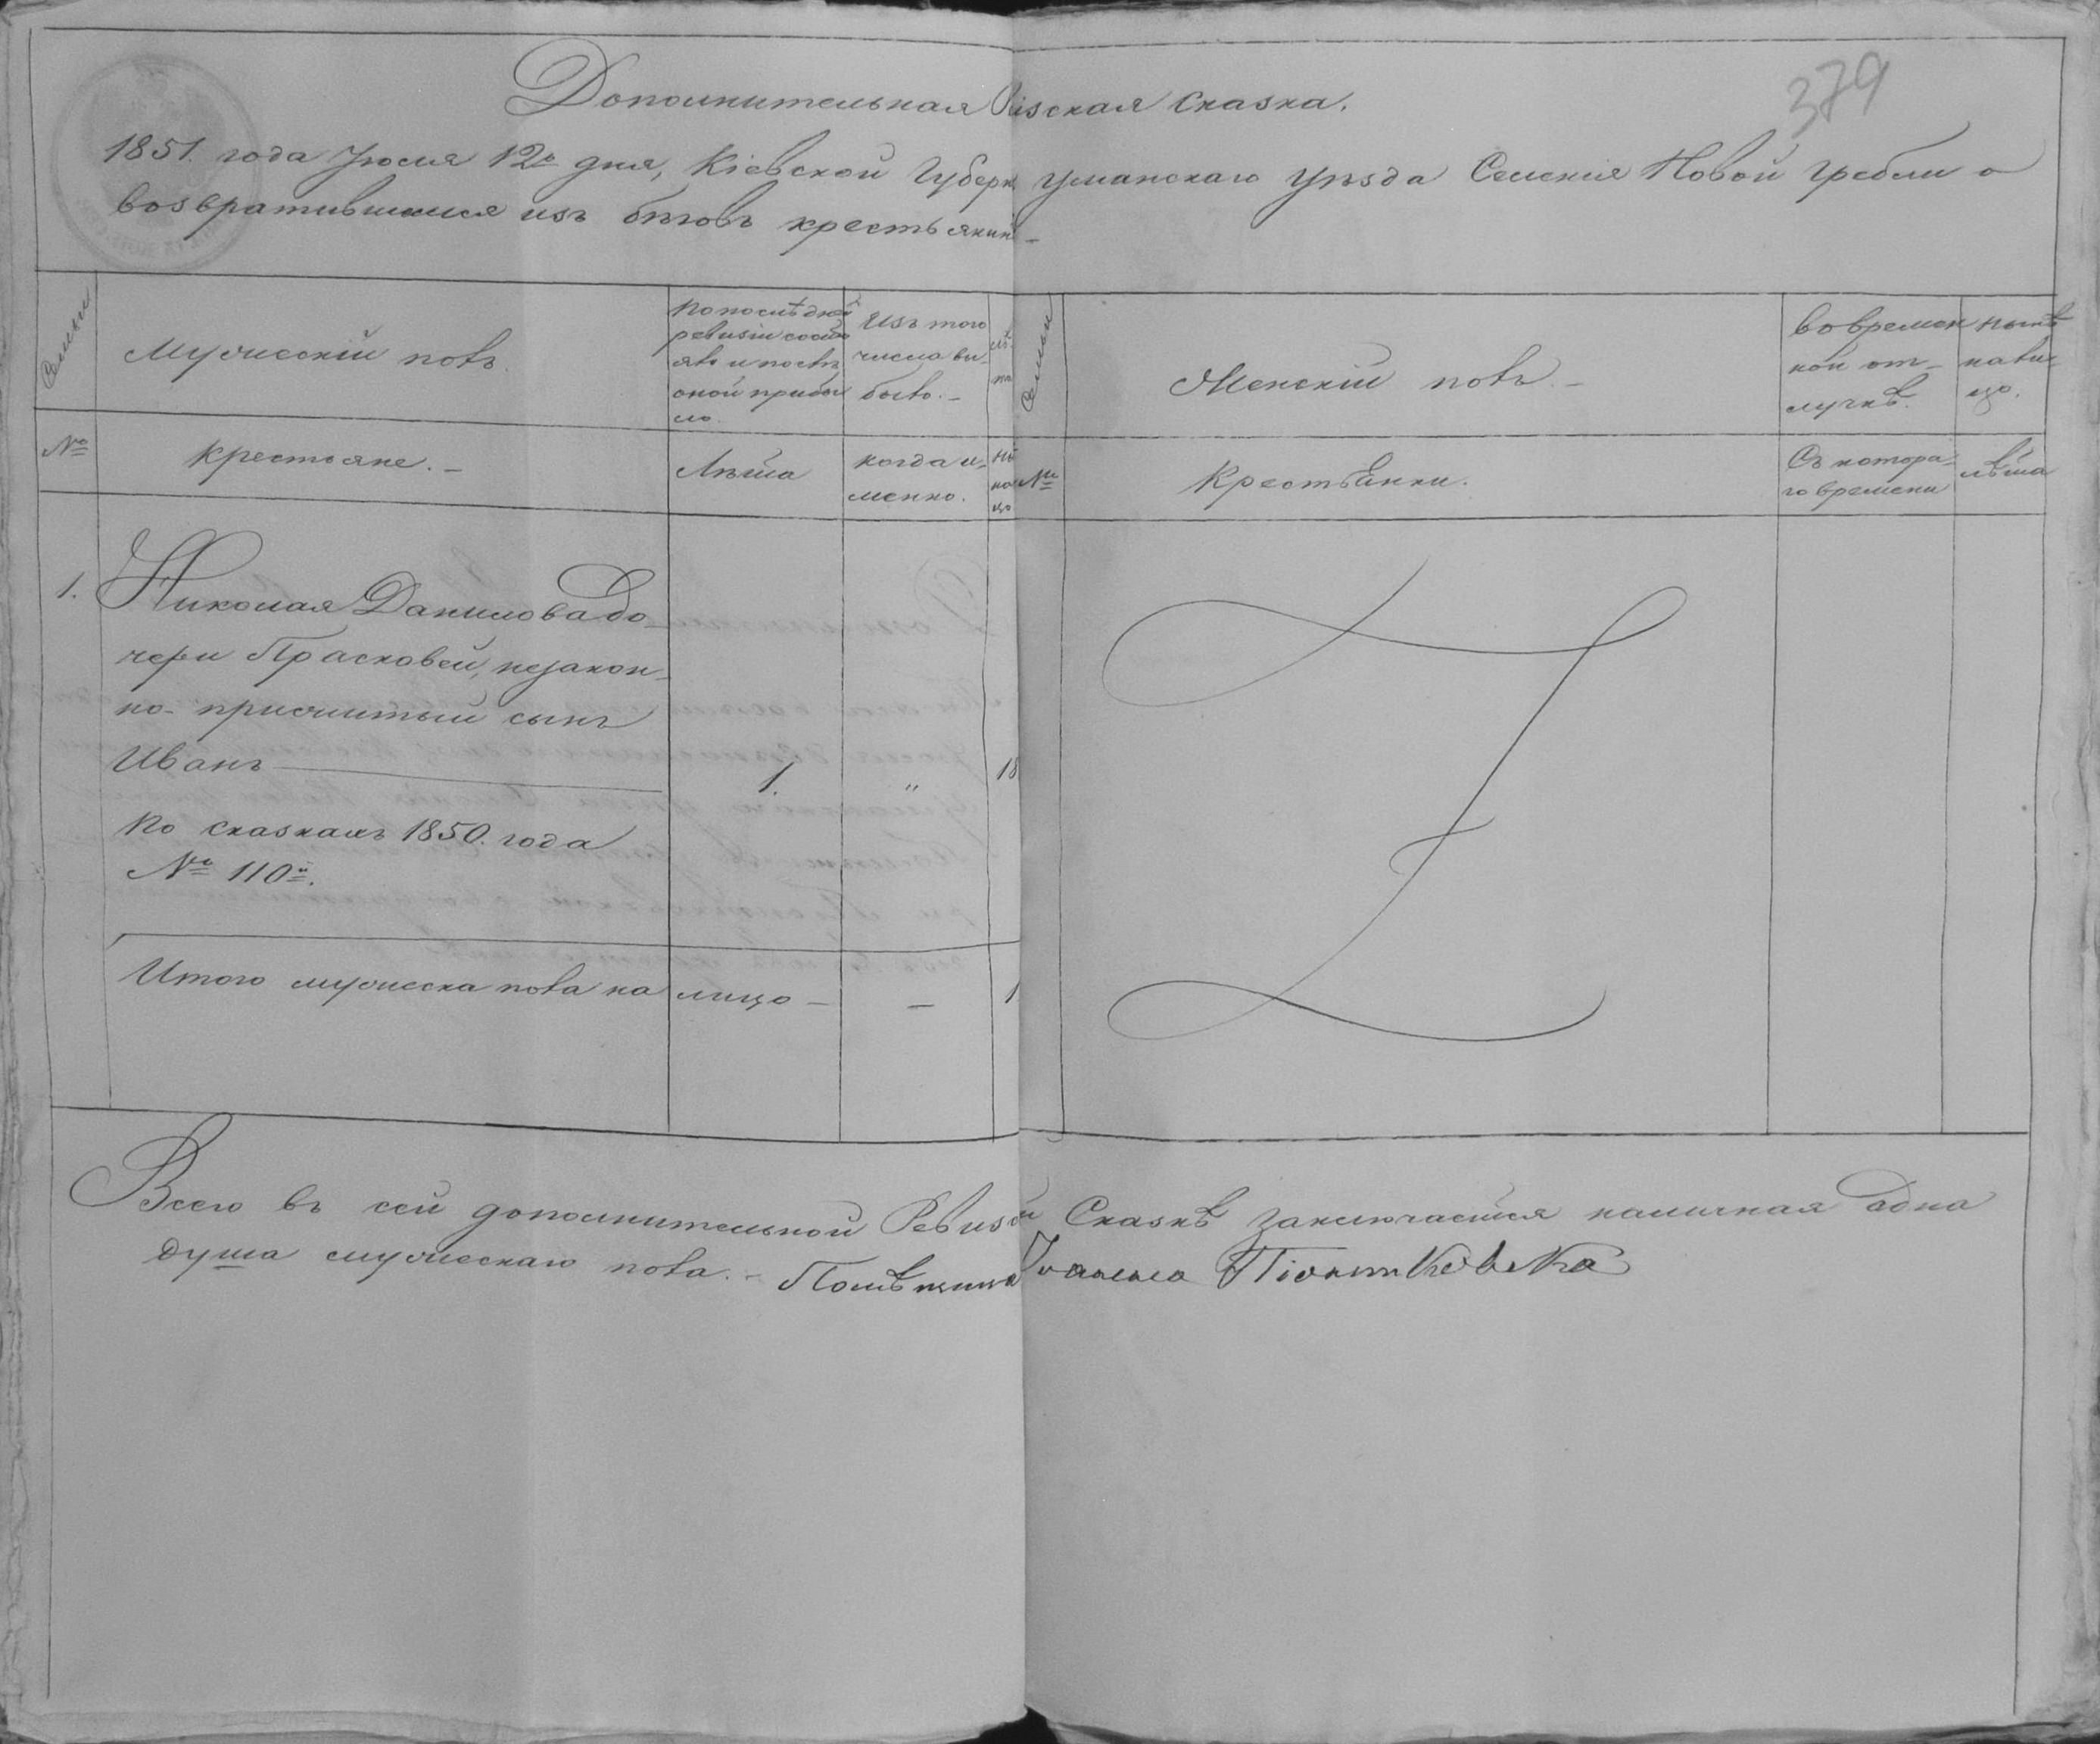 379
Дополнительная Ревизская сказка.
1851. года Іюля 12го дня, Кіевской Губерн Уманскаго уѣзда Селенія Новой Гребли о
возвратившемся изъ бѣговъ крестьянин
Семьи
Мужескій полъ.
По послѣдней
ревизіи состо
яло и послѣ
оной прибы
ло.
Изъ того
числа вы-
было.-
Семьи
Женскій полъ.-
Во времен
ной от-
лучкѣ.
Нынѣ
на ли-
цо.
№
Крестьяне.-
Лѣта
Когда и-
менно.
№
Крестьянки.
Съ котора-
го времени
Лѣта
1.
Николая Данилова до-
чери Прасковеи, незакон-
но прижитый сынъ
Иванъ
1.
"
18
По сказкамъ 1850. года
№ 110й.
Итого мужеска пола на лицо - - 1
Всего въ сей дополнительной Ревизской Сказкѣ заключается наличная одна
душа мужескаго пола.-